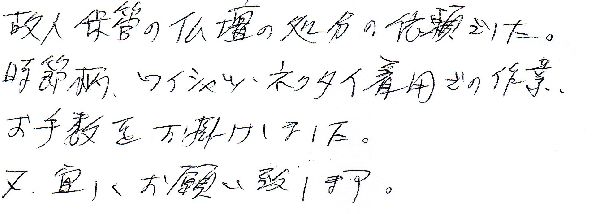 故人保管の仏壇の処分の依頼でした。
時節柄、ワイシャツ・ネクタイ着用での作業、
お手数をお掛けしました。
又、宜しくお願い致します。